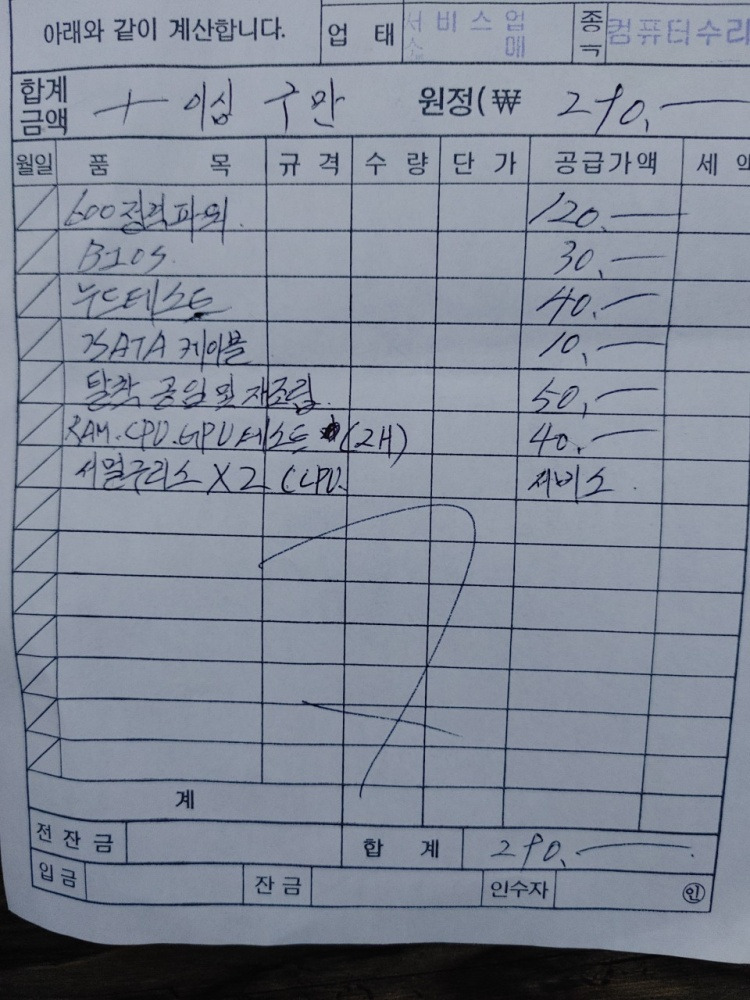 아래와 같이 계산합니다. 업 태 서비스업 종 컴퓨터수리
소 매
합계 금액 이십 구만 원정(₩ 290,—
월일 품 목 규 격 수 량 단 가 공급가액 세
600정격파워. 120.—
BIOS. 30,—
누드테스트 40.—
SATA 케이블 10,—
탈착 공임 및 재조립. 50,—
RAM.CPU.GPU테스트 (2H) 40.—
써멀구리스 X2 (CPU. 서비스.
계
전잔금 합 계 290.—
입금 잔금 인수자 인